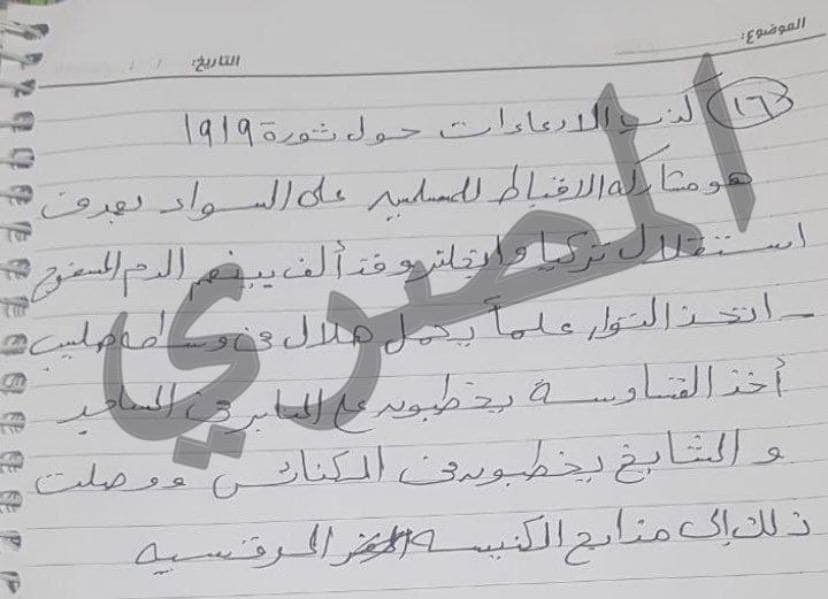 الموضوع:
التاريخ: / /
١٦ كذب الادعاءات حول ثورة ١٩١٩
هو مشاركه الاقباط للمسلمين على السواء بهدف
استقلال تركيا وانجلترا وقد ألف بينهم الدم المسفوح
- اتخذ الثوار علماً يحمل هلال فى وسطه صليب
أخذ القساوسة يخطبون على المنابر فى المساجد
و المشايخ يخطبون فى الكنائس ووصلت
ذلك إلى مذابح الكنيسه المرقسيه
المصري